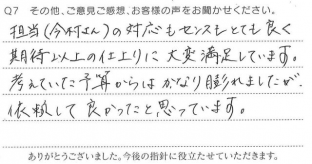 Q7 その他、ご意見ご感想、お客様の声をお聞かせください。
担当(今村さん)の対応もセンスもとても良く
期待以上の仕上りに大変満足しています。
考えていた予算からはかなり膨れましたが、
依頼して良かったと思っています。
ありがとうございました。今後の指針に役立たせていただきます。